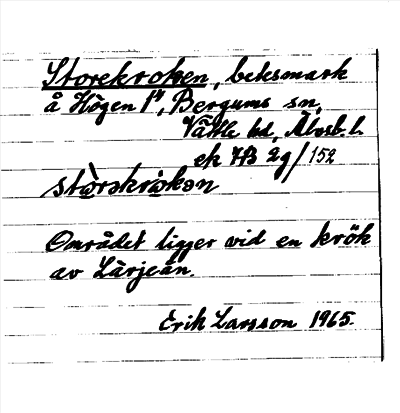 Storekroken, betesmark
å Högen 1⁴, Bergums sn,
Vättle hd, Älvsb. l.
ek 7B 2g/152
stòrəkròkən
Området ligger vid en krök
av Lärjeån.
Erik Larsson 1965.